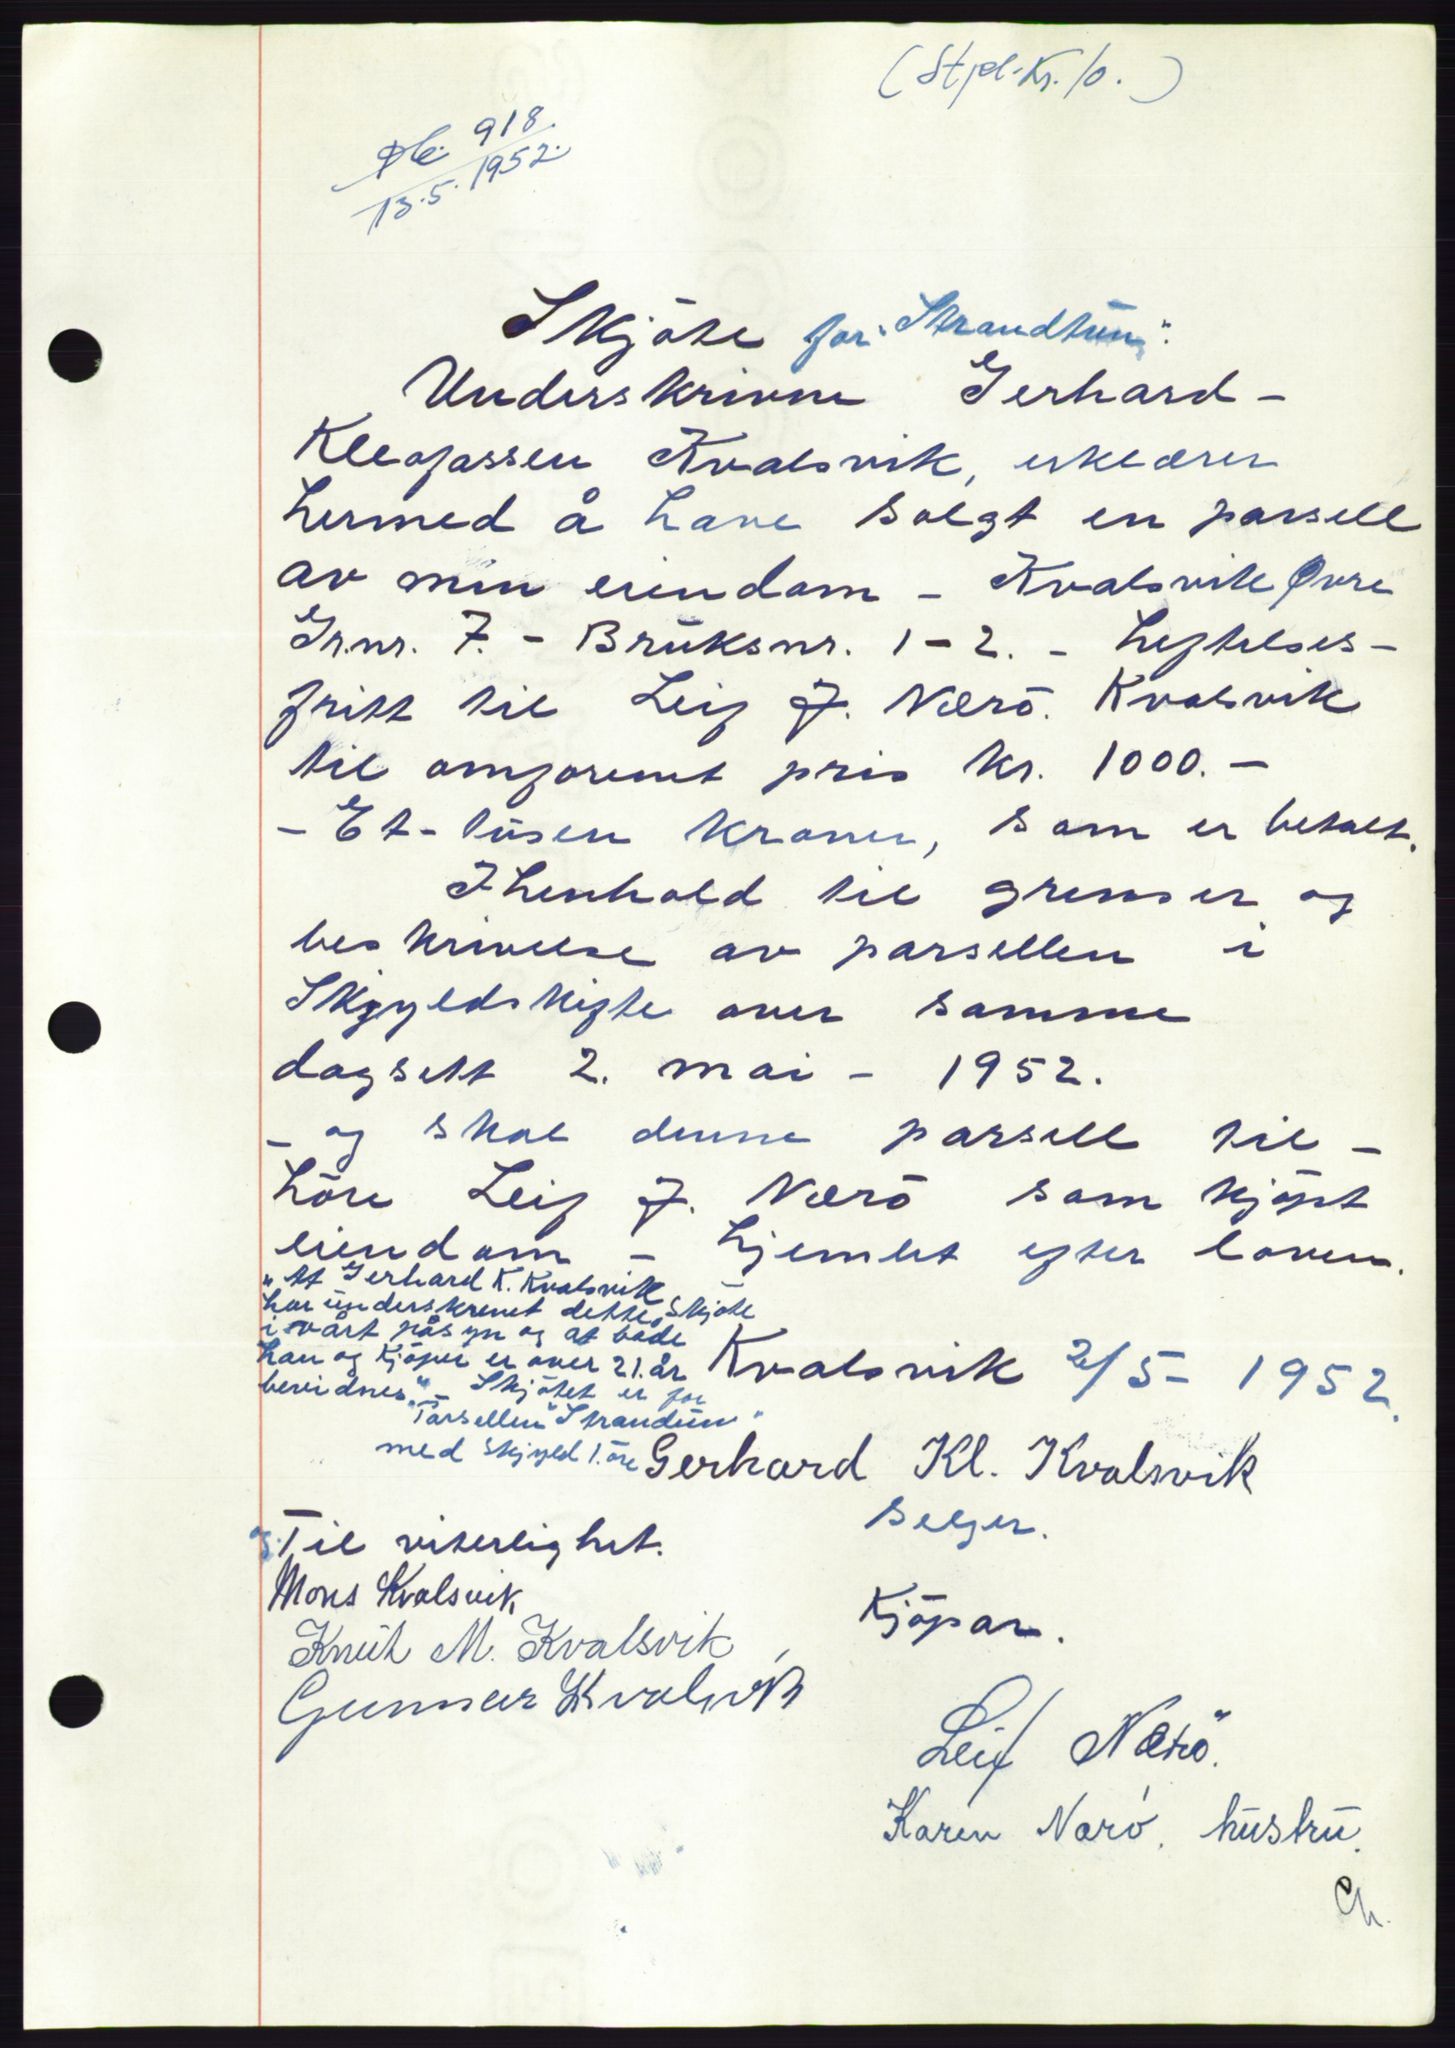 (Stpl. Kr. 10.)
Db. 918.
13.5. 1952.
Skjöte for "Strandtun".
Underskrivne Gerhard -
Kleofassen Kvalsvik, erklærer
hermed å have solgt en parsell
av min eiendom - Kvalsvik Øvre
Gr.nr. 7. - Bruksnr. 1-2. - heftelses-
fritt til Leif J. Nærö. Kvalsvik
til omforenet pris kr. 1000. -
- Et - tusen kroner, som er betalt.
I henhold til grenser og
beskrivelse av parsellen i
Skyldskifte over samme
dagsett 2. mai - 1952.
- og skal denne parsell til -
höre Leif J. Nærö som kjöpt
eiendom - hjemlet efter loven.
"At Gerhard K. Kvalsvik
har underskrevet dette skjöte
i vårt påsyn og at både
han og kjöper er over 21. år
bevidnes". - Skjötet er for
Parsellen "Strandtun"
med skyld 1. öre
Kvalsvik 2/5 - 1952.
Gerhard Kl. Kvalsvik
selger.
og. Til viterlighet.
Mons Kvalsvik
Knut M. Kvalsvik,
Gunnar Kvalsvik
Kjöpar.
Leif Nærö.
Karen Nærö. hustru.
Ch.